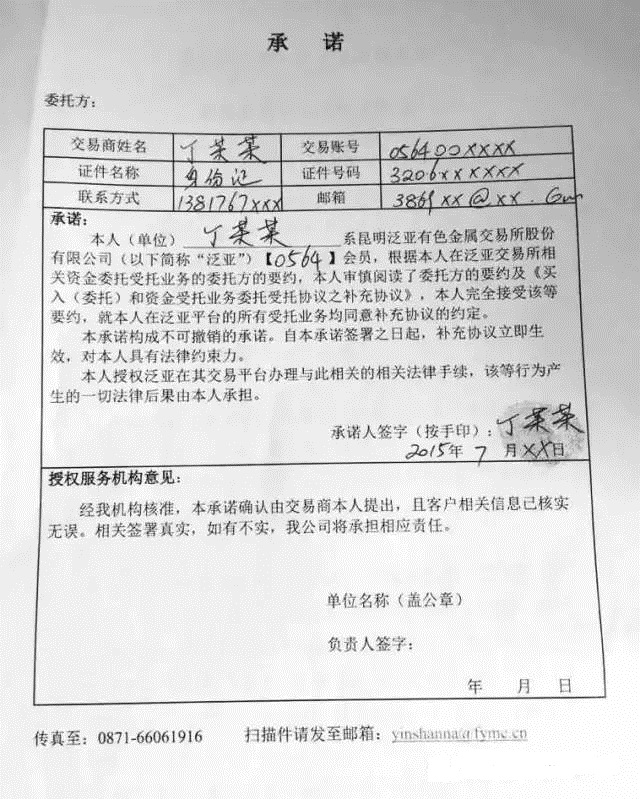 承 诺
委托方：
交易商姓名 丁某某 交易账号 056400XXXX
证件名称 身份证 证件号码 3206XXXXXXX
联系方式 1381767XXX 邮箱 3869XX@XX.
承诺：
本人（单位） 丁某某 系昆明泛亚有色金属交易所股份
有限公司（以下简称“泛亚”）【0564】会员，根据本人在泛亚交易所相
关资金委托受托业务的委托方的要约，本人审慎阅读了委托方的要约及《买
入（委托）和资金受托业务委托受托协议之补充协议》，本人完全接受该等
要约，就本人在泛亚平台的所有受托业务均同意补充协议的约定。
本承诺构成不可撤销的承诺。自本承诺签署之日起，补充协议立即生
效，对本人具有法律约束力。
本人授权泛亚在其交易平台办理与此相关的相关法律手续，该等行为产
生的一切法律后果由本人承担。
承诺人签字（按手印）：丁某某
2015年 7 月XX日
授权服务机构意见：
经我机构核准，本承诺确认由交易商本人提出，且客户相关信息已核实
无误。相关签署真实，如有不实，我公司将承担相应责任。
单位名称（盖公章）
负责人签字：
年 月 日
传真至：0871-66061916 扫描件请发至邮箱：yinshanna@fyme.cn